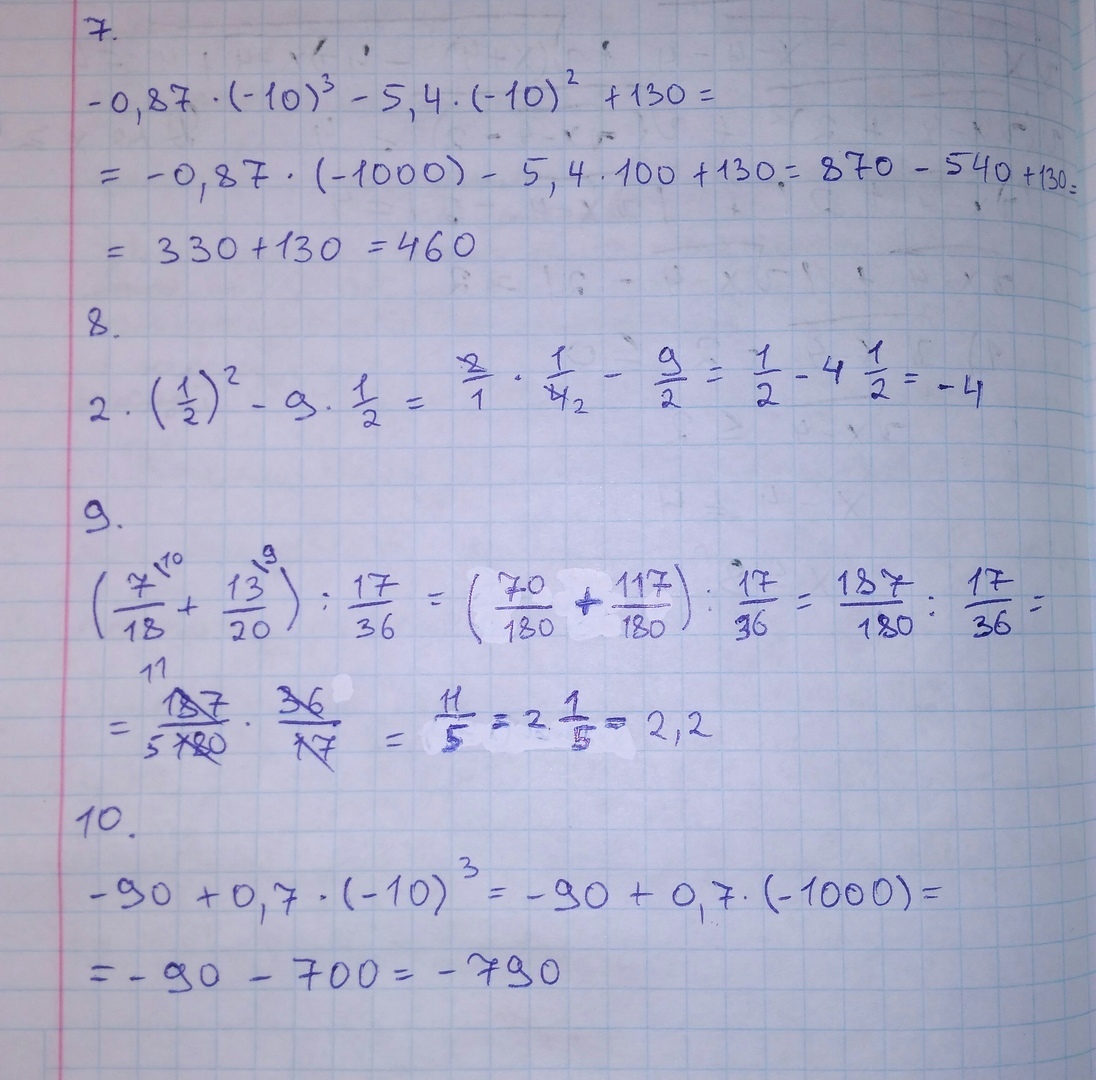 7.
-0,87 · (-10)³ - 5,4 · (-10)² + 130 =
= -0,87 · (-1000) - 5,4 · 100 + 130 = 870 - 540 + 130 =
= 330 + 130 = 460
8.
2 · (1/2)² - 9 · 1/2 = 2/1 · 1/4 2 - 9/2 = 1/2 - 4 1/2 = -4
9.
(7\10/18 + 13\9/20) : 17/36 = (70/180 + 117/180) : 17/36 = 187/180 : 17/36 =
11
= 187/5 180 · 36/17 = 11/5 = 2 1/5 = 2,2
10.
-90 + 0,7 · (-10)³ = -90 + 0,7 · (-1000) =
= -90 - 700 = -790